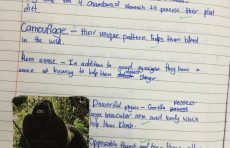 4 chambered stomach to process their plant
diet
Camouflage :- their unique pattern helps them blend
in the wild.
Keen sense :- In addition to good eyesight they have a
sense of hearing to help them danger.
Powerful physic - Gorilla possess
large muscular arm and body which
help them climb.
Opposable thumb and